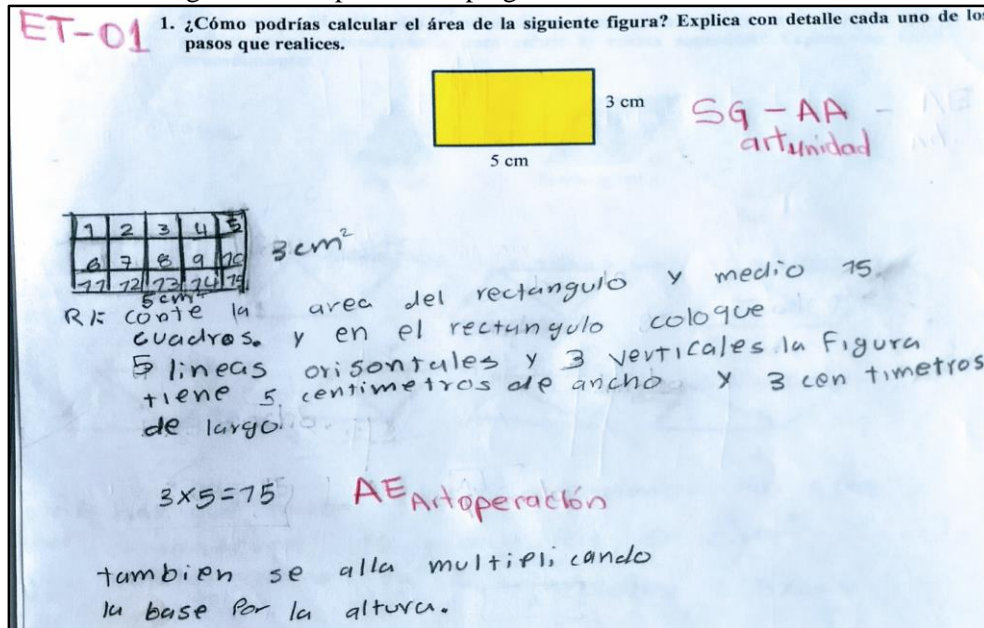 ET-01
1. ¿Cómo podrías calcular el área de la siguiente figura? Explica con detalle cada uno de los
pasos que realices.
3 cm
5 cm
SG - AA
artunidad
1 2 3 4 5
6 7 8 9 10
11 12 13 14 15
3 cm²
5 cm²
R/: conte la area del rectangulo y medio 15
cuadros. y en el rectungulo coloque
5 lineas orisontales y 3 verticales la Figura
tiene 5 centimetros de ancho y 3 centimetros
de largo
3x5=15
AE Artoperación
tambien se alla multiplicando
la base por la altura.